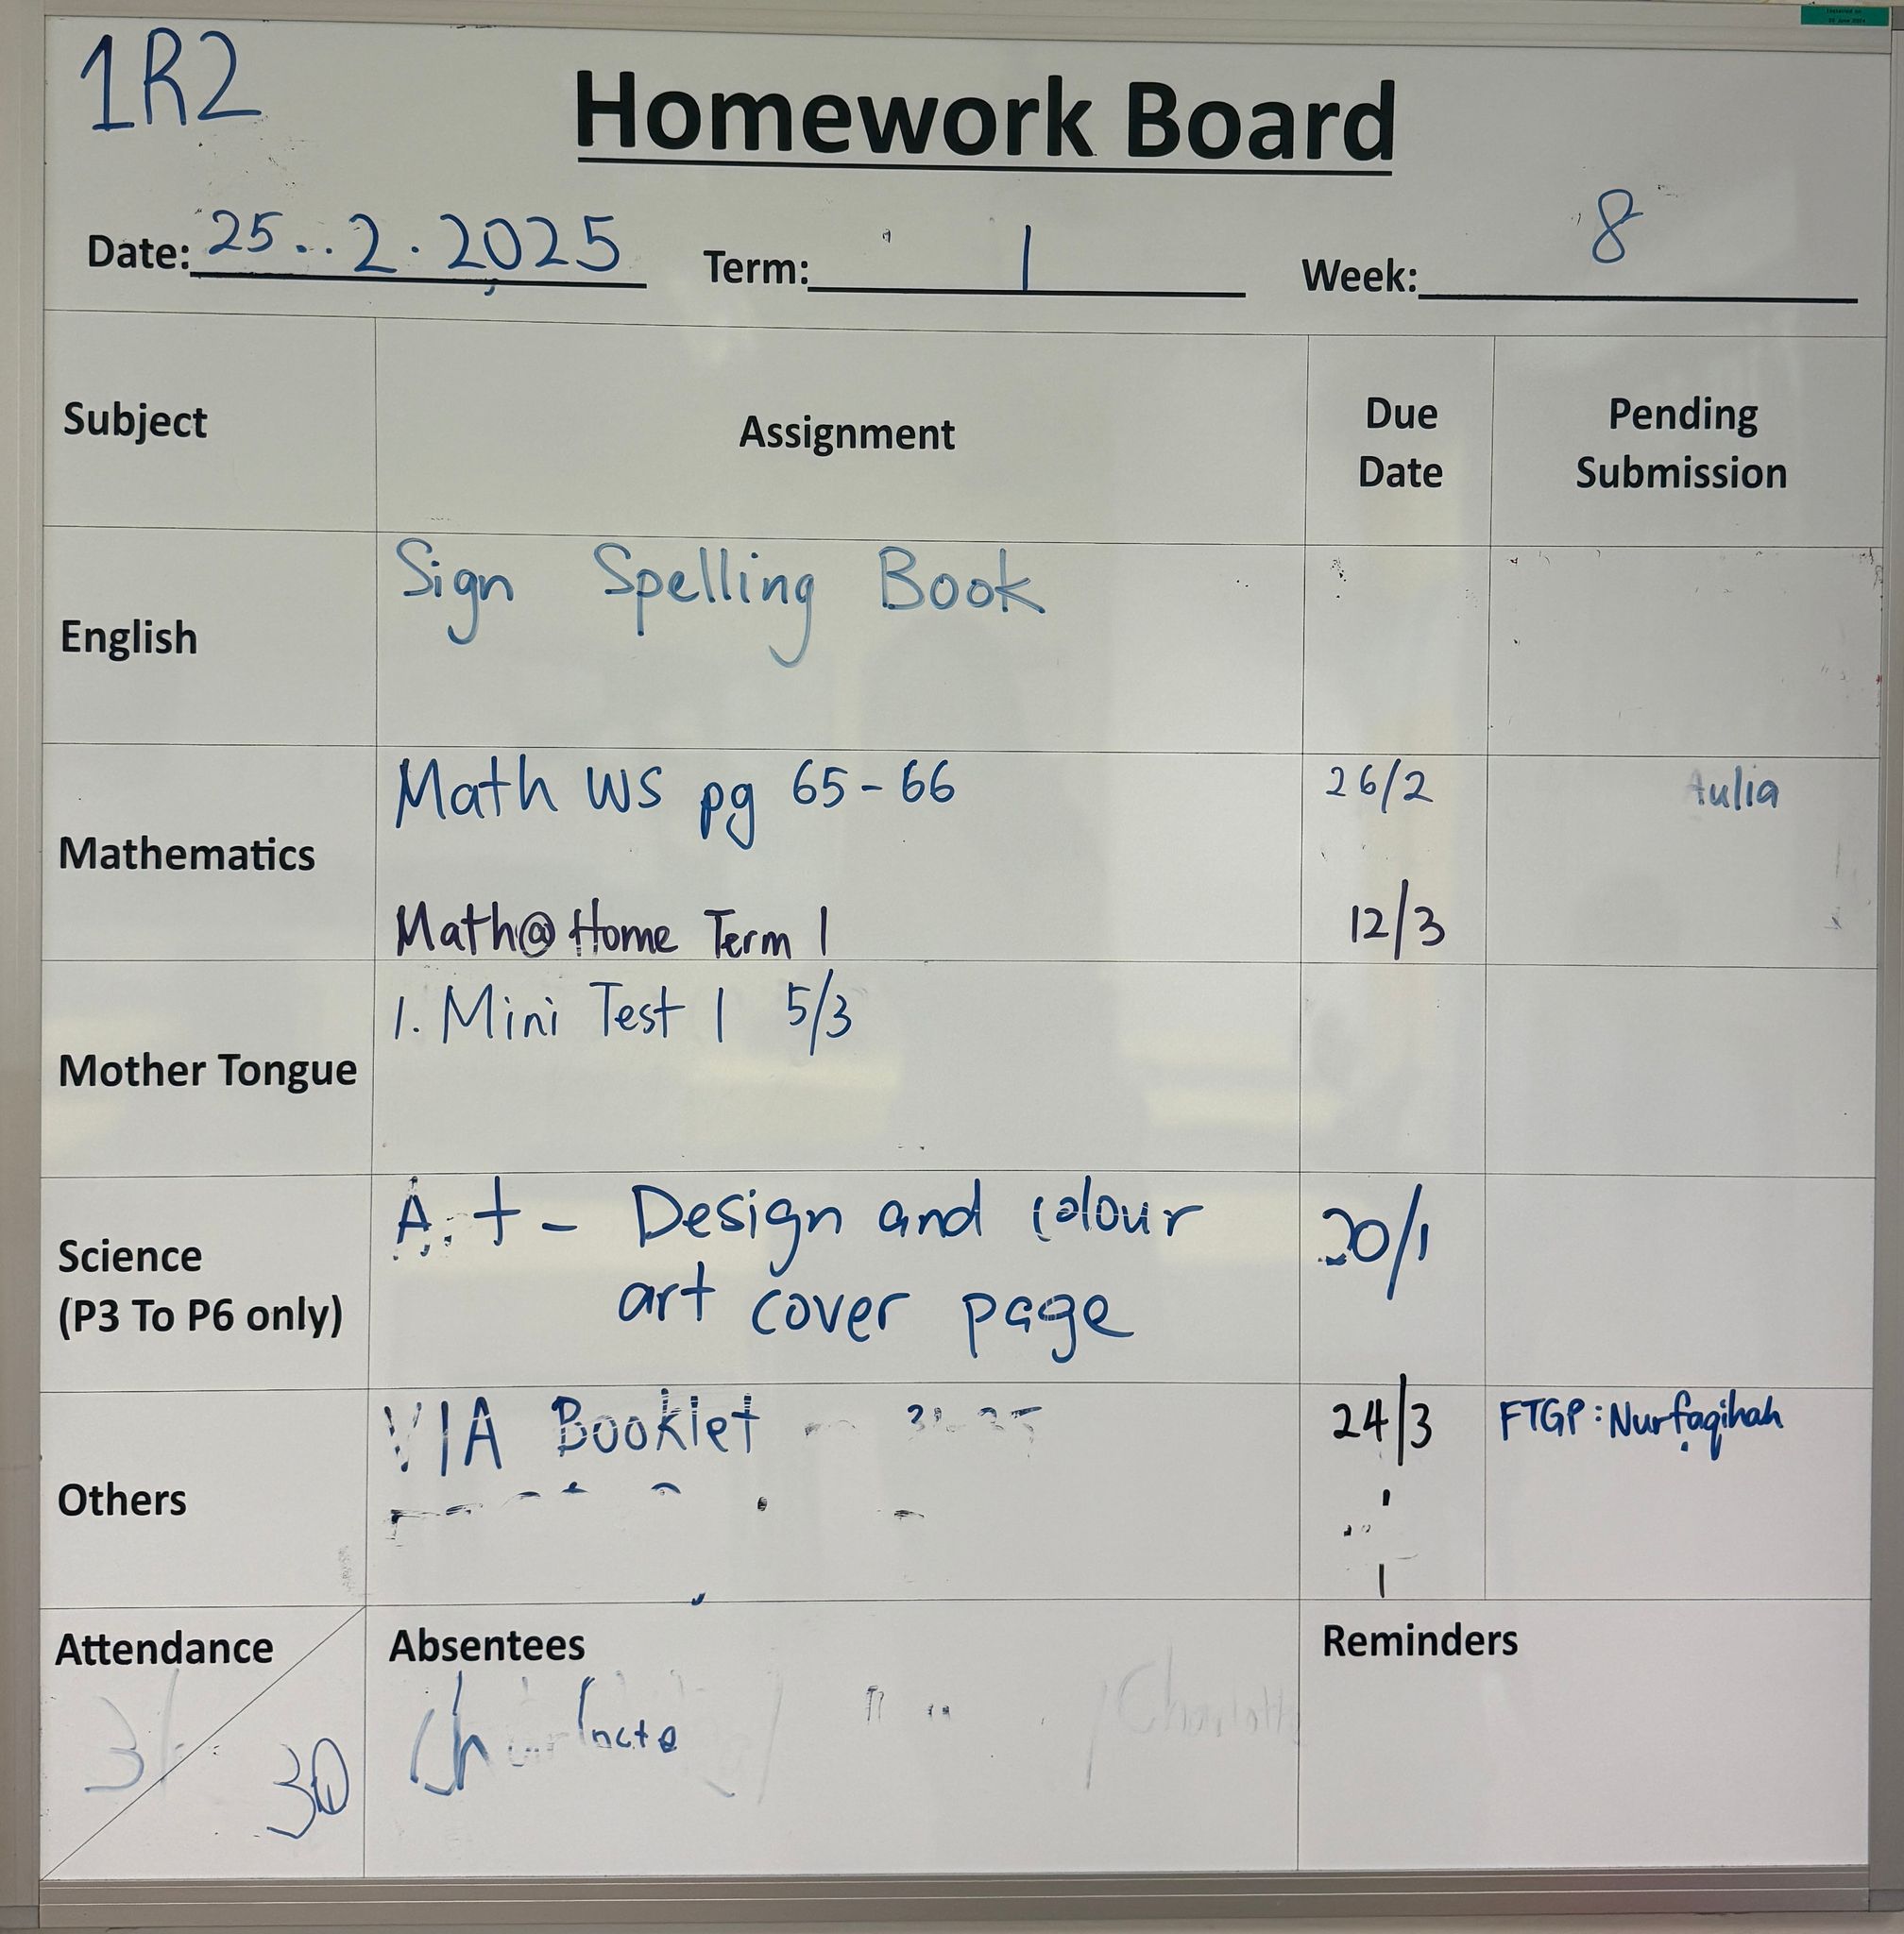 1R2
Homework Board
Date: 25..2.2025 Term: 1 Week: 8
Subject Assignment Due Date Pending Submission
English Sign Spelling Book
Mathematics Math WS pg 65-66 26/2 Aulia
Math@Home Term 1 12/3
Mother Tongue 1. Mini Test 1 5/3
Science (P3 To P6 only) Art - Design and colour 20/1
art cover page
Others VIA Booklet 24/3 FTGP: Nurfaqihah
Attendance Absentees Reminders
31 30 Charlotte